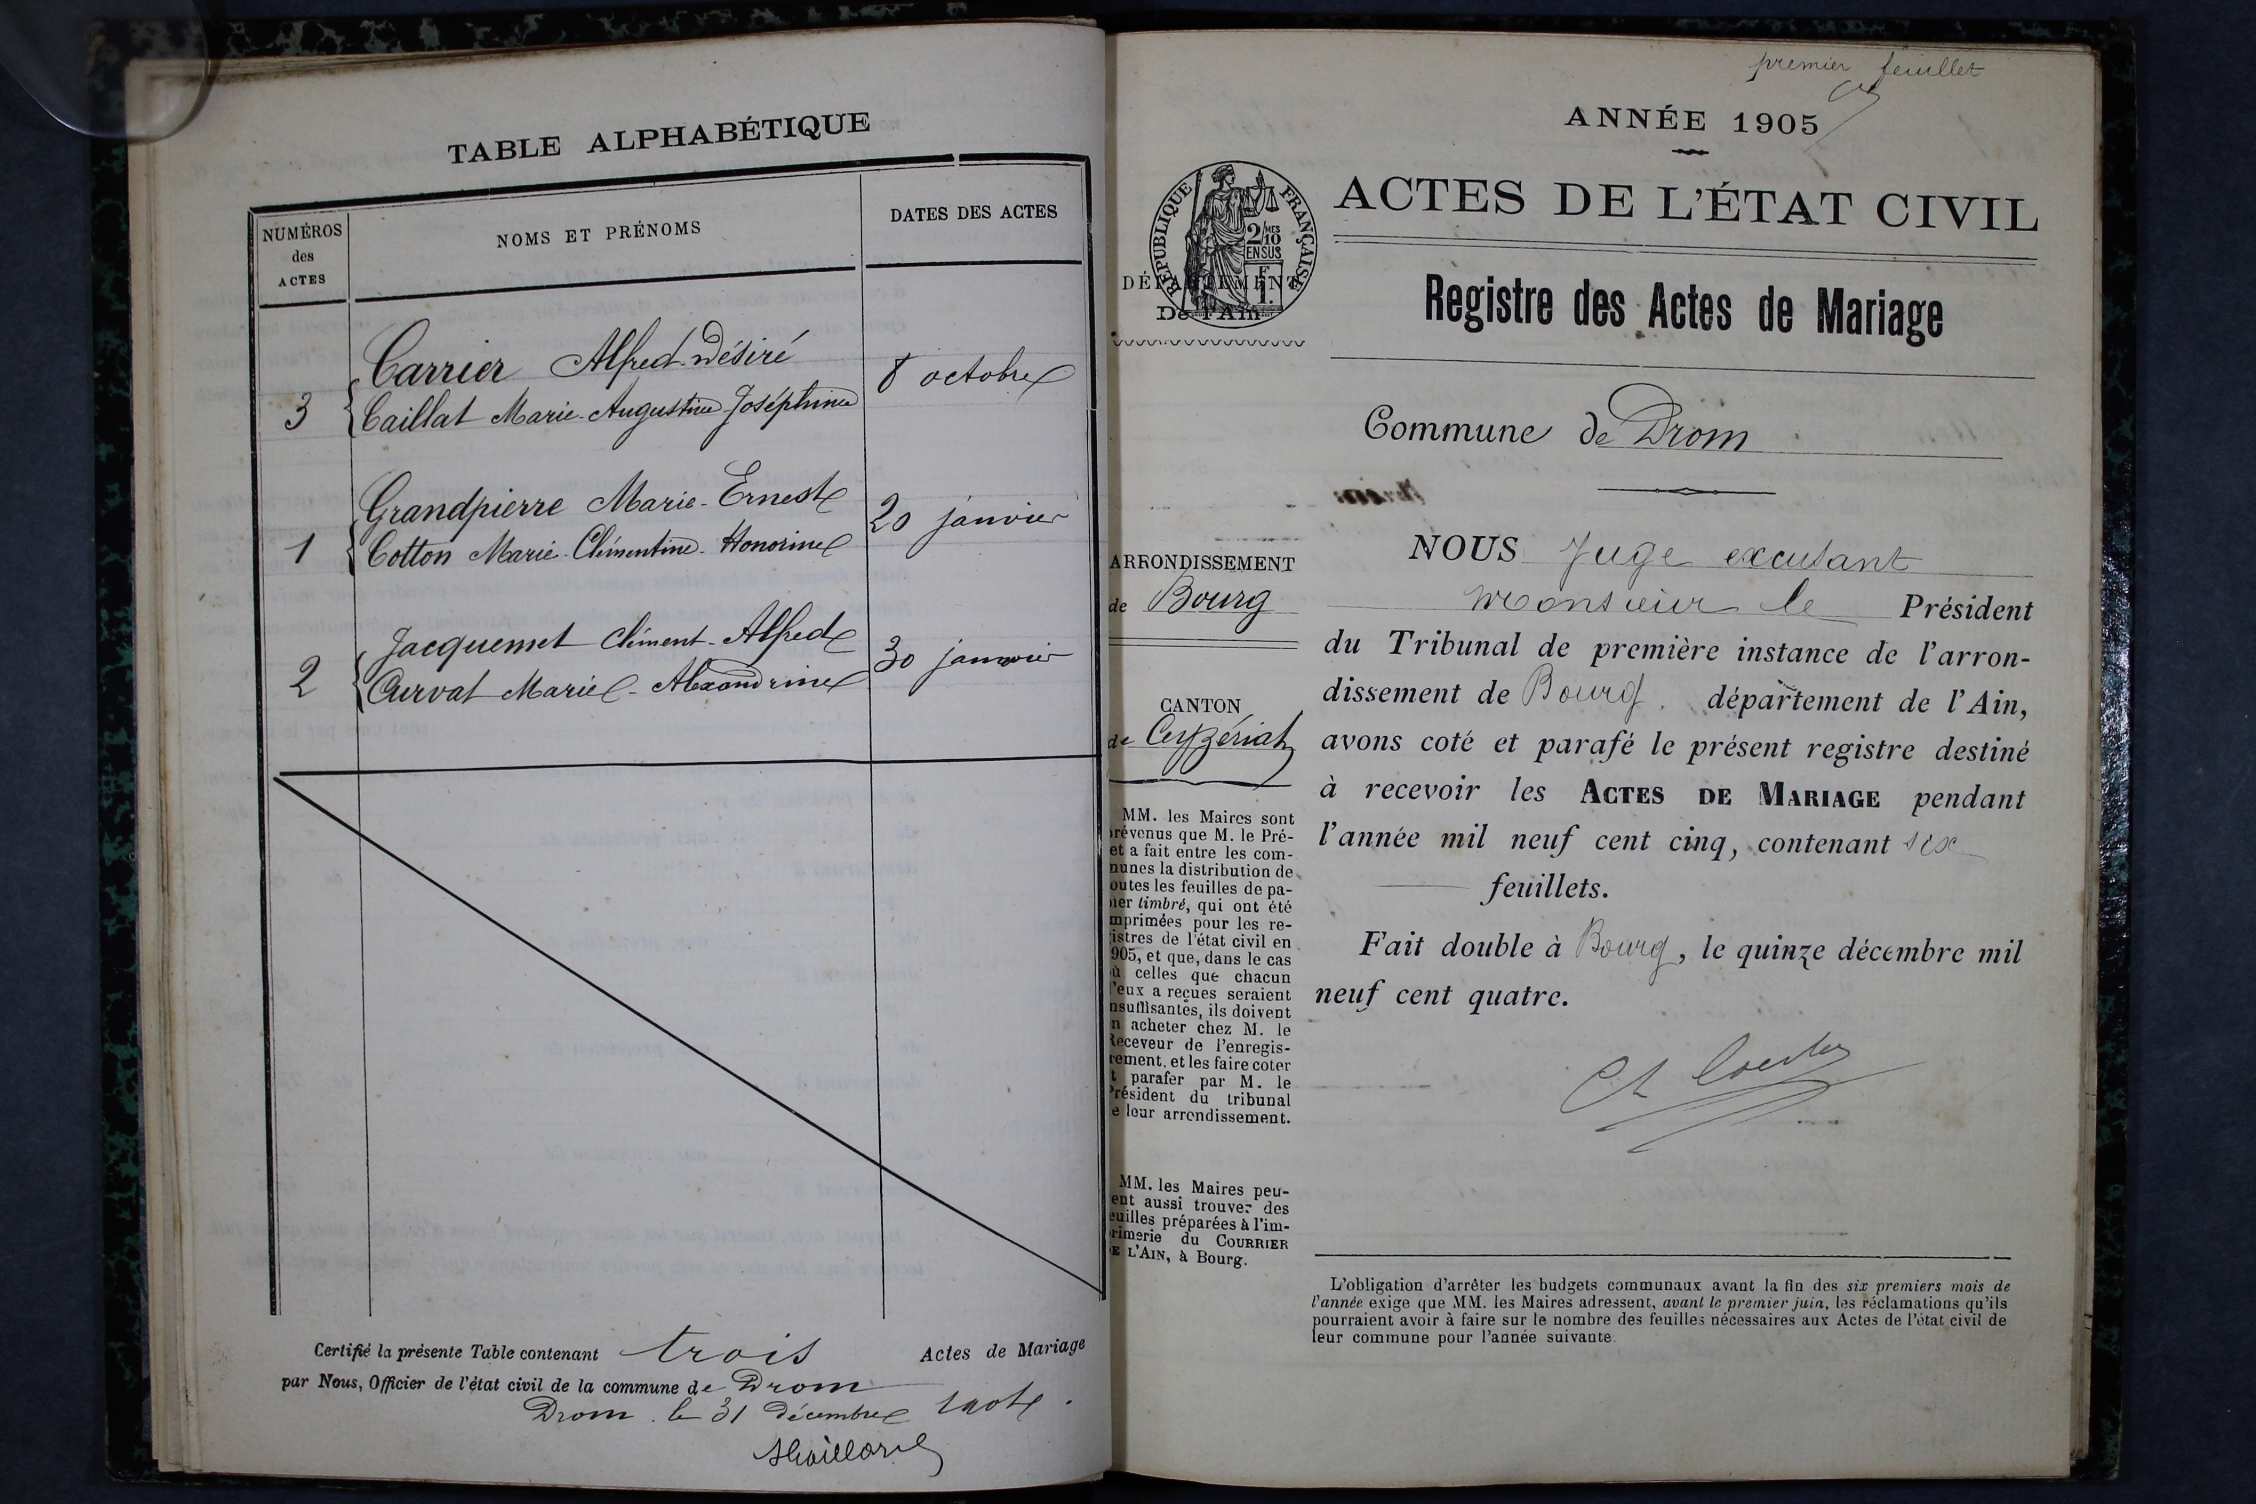 TABLE ALPHABÉTIQUE
NUMÉROS des ACTES
NOMS ET PRÉNOMS
DATES DES ACTES
Carrier Alfred-Désiré
3 Caillat Marie-Augustine-Joséphine
8 octobre
Grandpierre Marie-Ernest
1 Cotton Marie-Clémentine-Honorine
20 janvier
Jacquemet Clément-Alfred
2 Curvat Marie-Alexandrine
30 janvier
Certifié la présente Table contenant trois Actes de Mariage
par Nous, Officier de l'état civil de la commune de Drom
Drom le 31 décembre
premier feuillet
ANNÉE 1905
ACTES DE L'ÉTAT CIVIL
Registre des Actes de Mariage
RÉPUBLIQUE FRANÇAISE
2/10 MES
EN SUS
F
1.
DÉPARTEMENT
De l'Ain
Commune de Drom
ARRONDISSEMENT
de Bourg
CANTON
de Ceyzériat
MM. les Maires sont
révenus que M. le Pré-
et a fait entre les com-
munes la distribution de
outes les feuilles de pa-
ier timbré, qui ont été
mprimées pour les re-
istres de l'état civil en
905, et que, dans le cas
ù celles que chacun
'eux a reçues seraient
nsuffisantes, ils doivent
n acheter chez M. le
Receveur de l'enregis-
rement, et les faire coter
t parafer par M. le
Président du tribunal
e leur arrondissement.
MM. les Maires peu-
ent aussi trouver des
euilles préparées à l'im-
rimerie du COURRIER
E L'AIN, à Bourg.
NOUS Juge excusant
Monsieur le Président
du Tribunal de première instance de l'arron-
dissement de Bourg, département de l'Ain,
avons coté et parafé le présent registre destiné
à recevoir les ACTES DE MARIAGE pendant
l'année mil neuf cent cinq, contenant six
feuillets.
Fait double à Bourg, le quinze décembre mil
neuf cent quatre.
L'obligation d'arrêter les budgets communaux avant la fin des six premiers mois de
l'année exige que MM. les Maires adressent, avant le premier juin, les réclamations qu'ils
pourraient avoir à faire sur le nombre des feuilles nécessaires aux Actes de l'état civil de
leur commune pour l'année suivante.